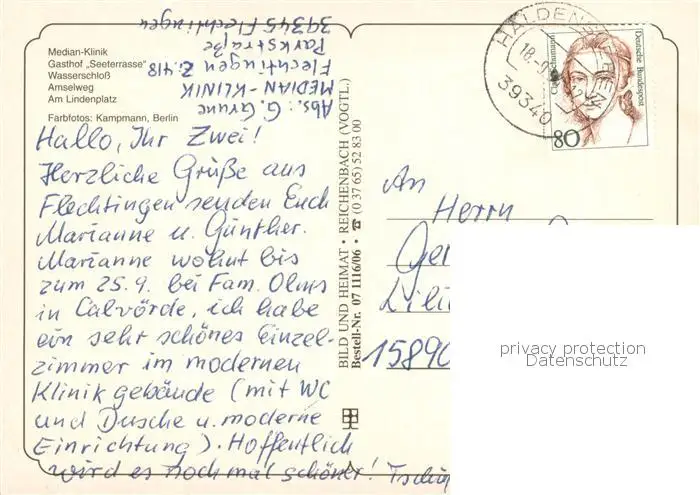 Median-Klinik
Gasthof „Seeterrasse“
Wasserschloß
Amselweg
Am Lindenplatz
Farbfotos: Kampmann, Berlin
Abs.: G. Grunc
MEDIAN-KLINIK
Flechtingen Z.418
Parkstraße
39345 Flechtingen
Hallo, Ihr Zwei!
Herzliche Grüße aus
Flechtingen senden Euch
Marianne u. Günther.
Marianne wohnt bis
zum 25.9. bei Fam. Olms
in Calvörde, ich habe
ein sehr schönes Einzel-
zimmer im modernen
Klinikgebäude (mit WC
und Dusche u. moderne
Einrichtung). Hoffentlich
wird es noch mal schöner! Tschü
BILD UND HEIMAT · REICHENBACH (VOGTL.)
Bestell-Nr. 07 1116/06 · ☎ (0 37 65) 52 83 00
HALDENSLEBEN
18.-9.
39340
Clara Schumann
Deutsche Bundespost
80
An
Herrn
Ge
Lili
15890
privacy protection
Datenschutz